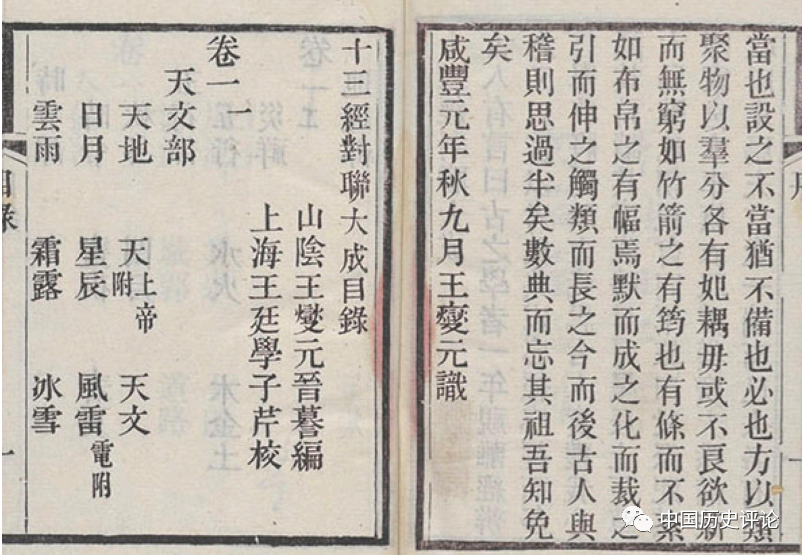 當也設之不當猶不備也必也方以類
聚物以羣分各有妃耦毋或不良欲新
而無窮如竹箭之有筠也有條而不紊
如布帛之有幅焉默而成之化而裁之
引而伸之觸類而長之今而後古人與
稽則思過半矣數典而忘其祖吾知免
矣
咸豐元年秋九月王燮元識
十三經對聯大成目錄
山陰王燮元晉蕃編
上海王廷學子芹校
卷一一
天文部
天地 天上帝附 天文
日月 星辰 風雷電附
雲雨 霜露 冰雪
目錄
一
中国历史评论